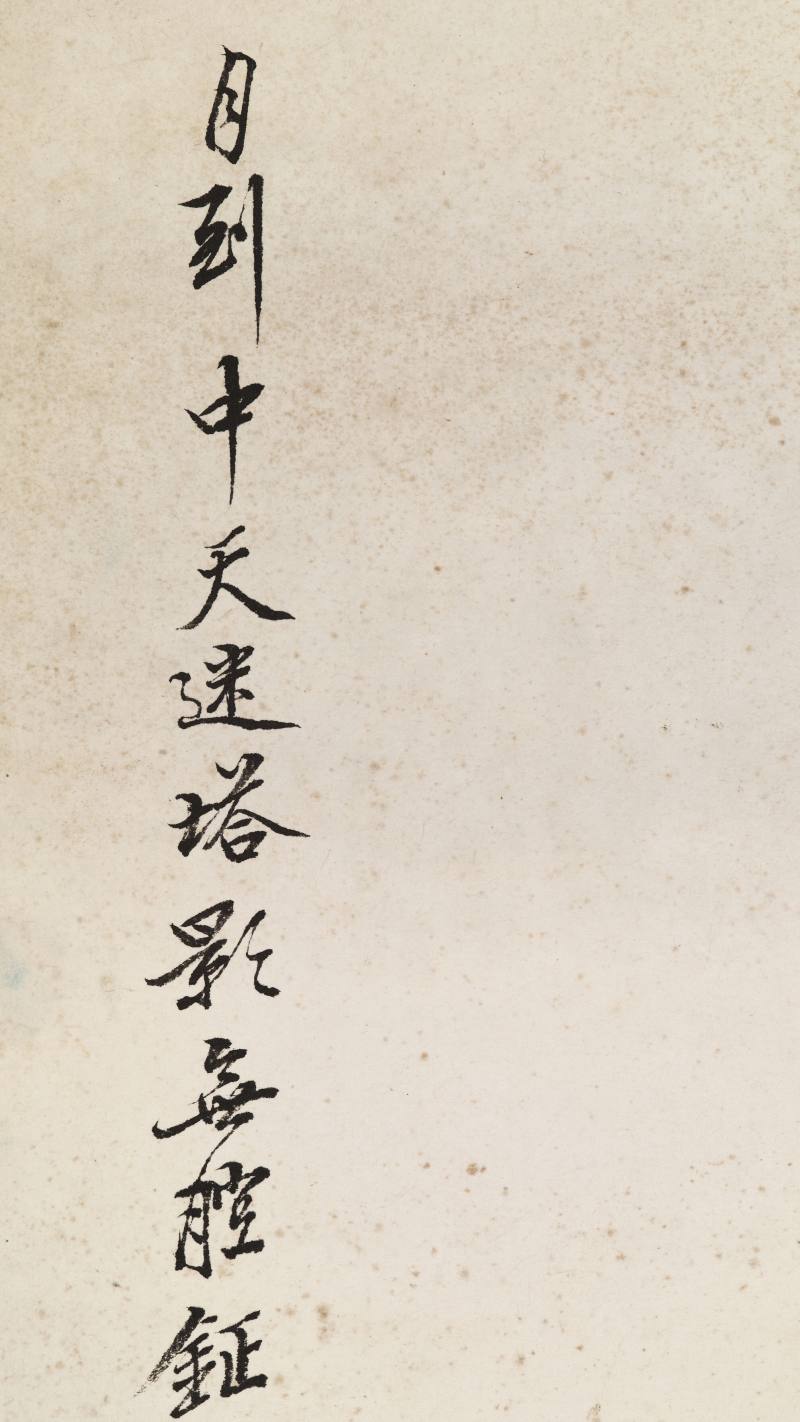 月到中天迷塔影無腔鉦